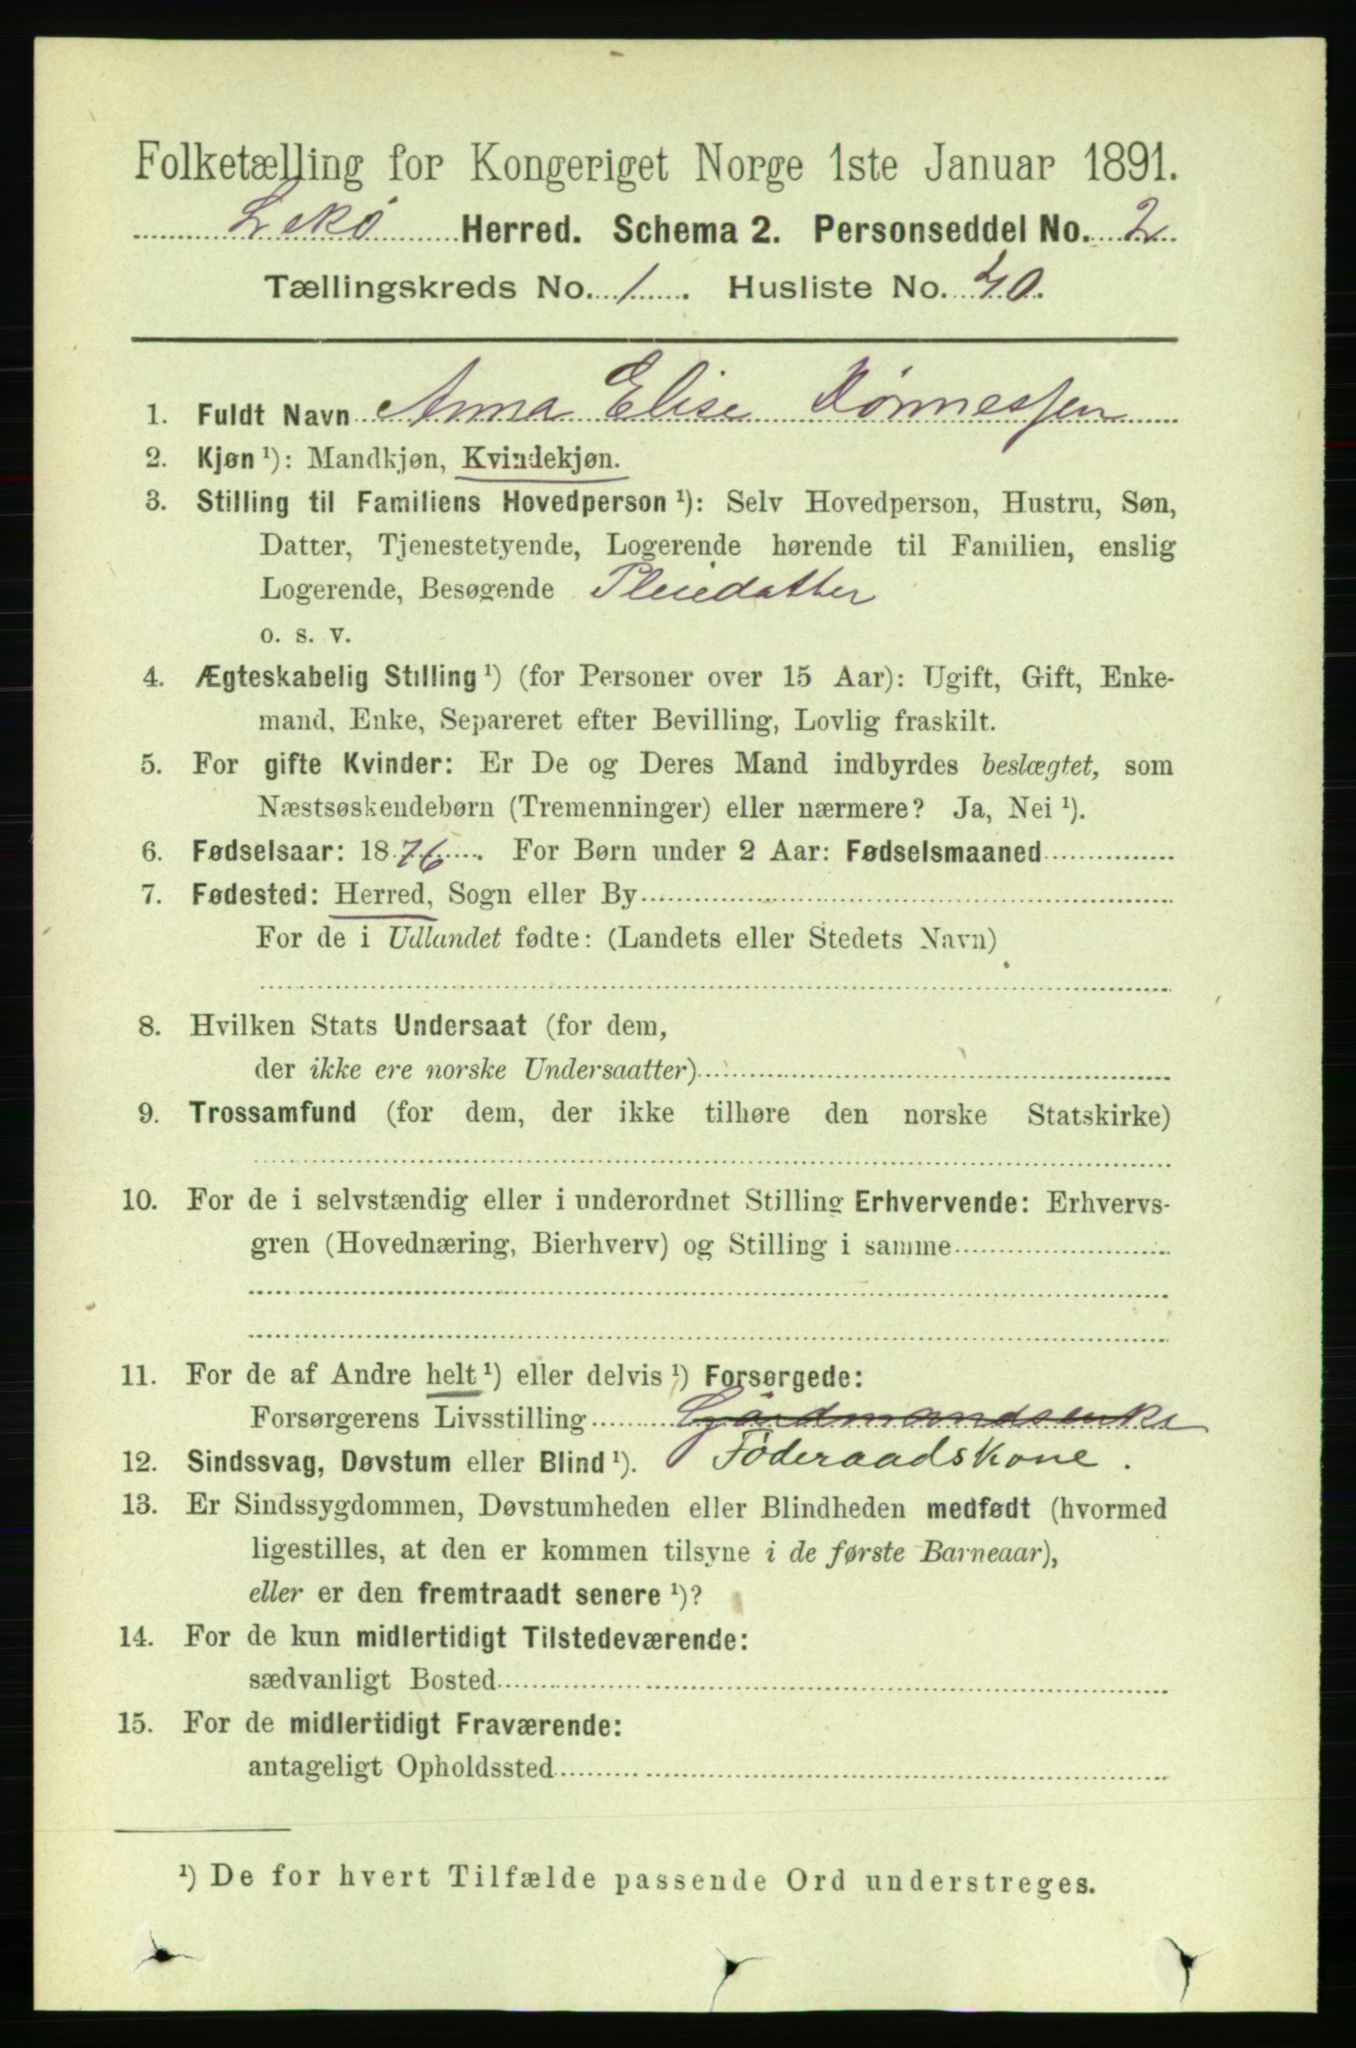 Folketælling for Kongeriget Norge 1ste Januar 1891.
Lekø Herred. Schema 2. Personseddel No. 2
Tællingskreds No. 1. Husliste No. 40.
1. Fuldt Navn Anna Elise Tønnessen
2. Kjøn ¹): Mandkjøn, Kvindekjøn.
3. Stilling til Familiens Hovedperson ¹): Selv Hovedperson, Hustru, Søn,
Datter, Tjenestetyende, Logerende hørende til Familien, enslig
Logerende, Besøgende Pleiedatter
o. s. v.
4. Ægteskabelig Stilling ¹) (for Personer over 15 Aar): Ugift, Gift, Enke-
mand, Enke, Separeret efter Bevilling, Lovlig fraskilt.
5. For gifte Kvinder: Er De og Deres Mand indbyrdes beslægtet, som
Næstsøskendebørn (Tremenninger) eller nærmere? Ja, Nei ¹).
6. Fødselsaar: 1876. For Børn under 2 Aar: Fødselsmaaned
7. Fødested: Herred, Sogn eller By
For de i Udlandet fødte: (Landets eller Stedets Navn)
8. Hvilken Stats Undersaat (for dem,
der ikke ere norske Undersaatter)
9. Trossamfund (for dem, der ikke tilhøre den norske Statskirke)
10. For de i selvstændig eller i underordnet Stilling Erhvervende: Erhvervs-
gren (Hovednæring, Bierhverv) og Stilling i samme
11. For de af Andre helt ¹) eller delvis ¹) Forsørgede:
Forsørgerens Livsstilling Gårdmandsenke
12. Sindssvag, Døvstum eller Blind ¹). Føderaadskone.
13. Er Sindssygdommen, Døvstumheden eller Blindheden medfødt (hvormed
ligestilles, at den er kommen tilsyne i de første Barneaar),
eller er den fremtraadt senere ¹)?
14. For de kun midlertidigt Tilstedeværende:
sædvanligt Bosted
15. For de midlertidigt Fraværende:
antageligt Opholdssted
¹) De for hvert Tilfælde passende Ord understreges.